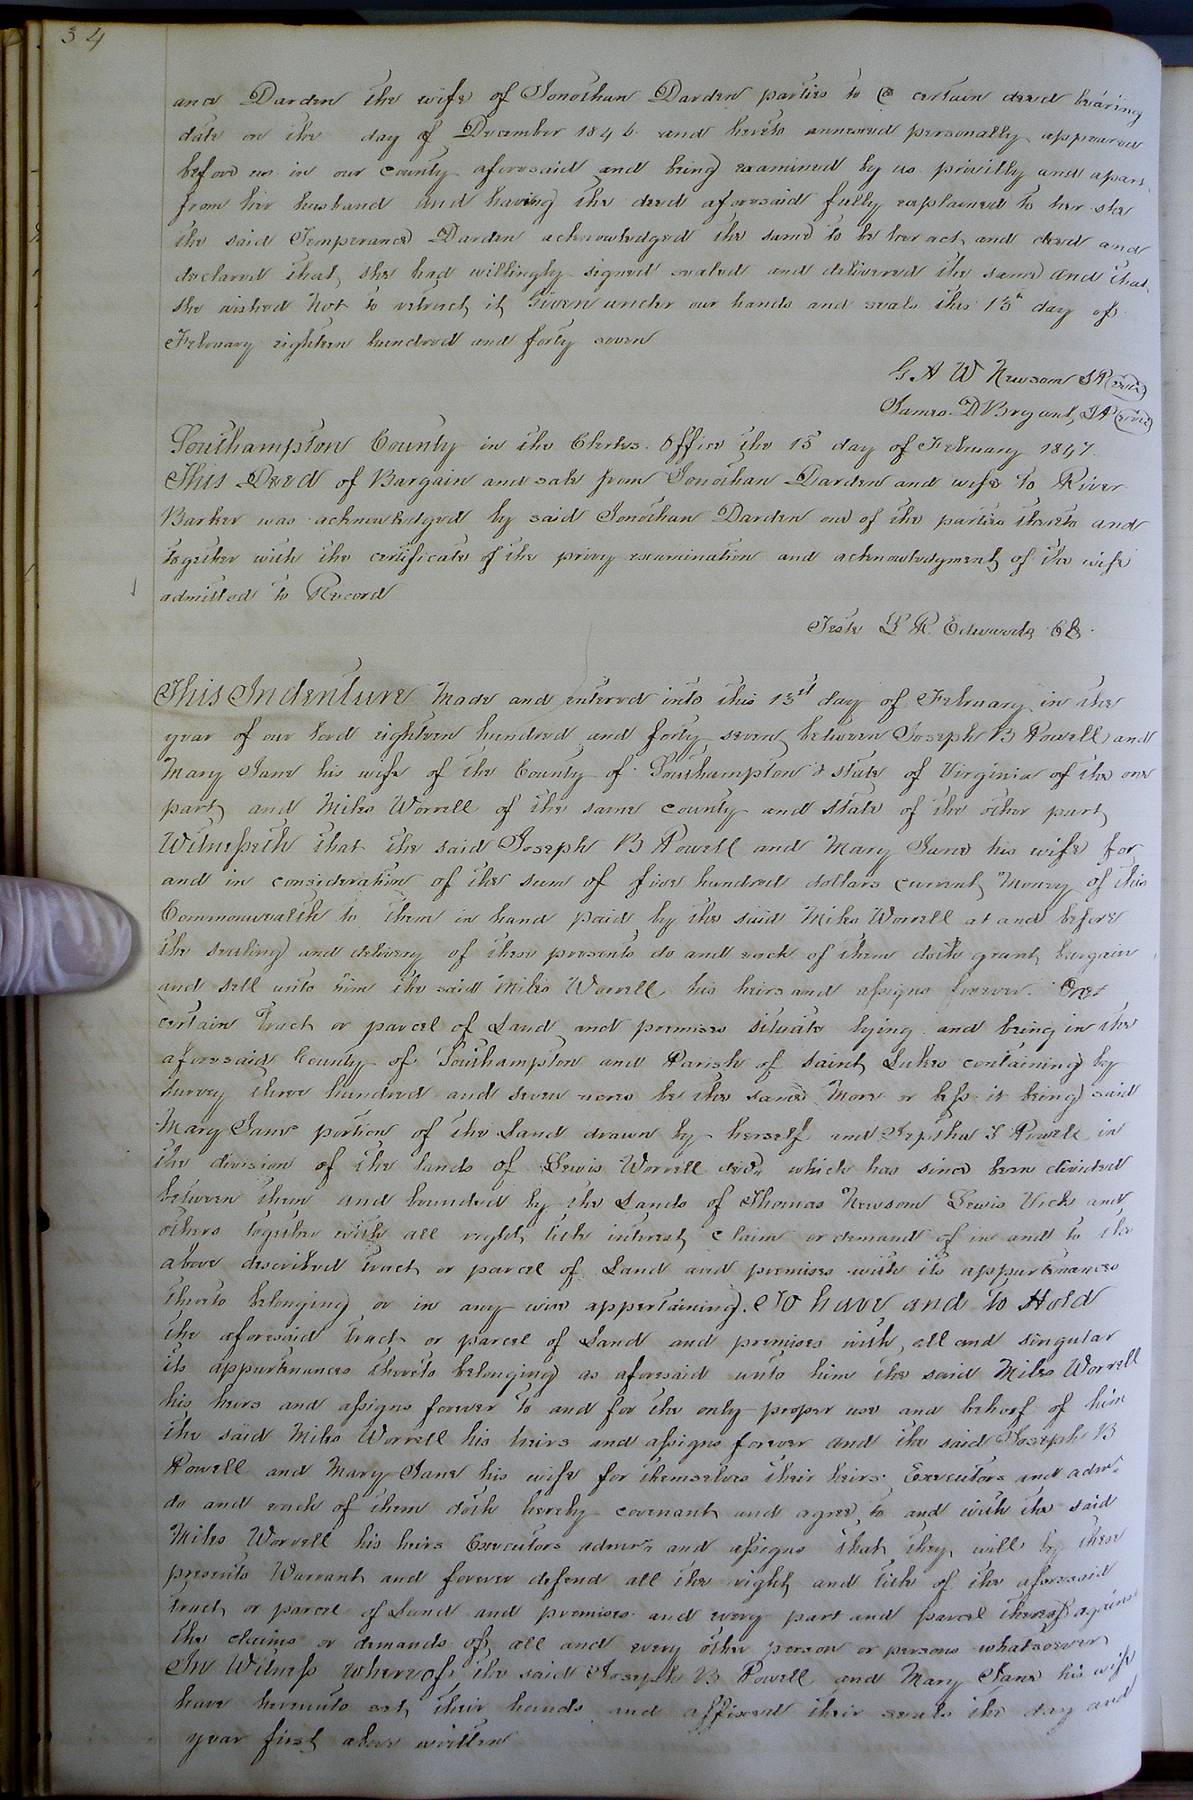 34
ance Darden the wife of Jonathan Darden parties to a certain deed bearing
date on the day of December 1846 and hereto annexed personally appeared
before us in our county aforesaid and being examined by us privilly and apart
from her husband and having the deed aforesaid fully explained to her she
the said Temperance Darden acknowledged the same to be her act and deed and
declared that she had willingly signed sealed and delivered the same and that
she wished not to retract it Given under our hands and seals this 15th day of
February eighteen hundred and forty seven
G. A W Newsom JP (seal)
James. D Bryant, JP (seal)
Southampton County in the Clerks. Office the 15 day of February 1847.
This Deed of Bargain and sale from Jonathan Darden and wife to River
Barker was acknowledged by said Jonathan Darden one of the parties thereto and
together with the certificate of the privy examination and acknowledgment of the wife
admitted to Record
Teste L R. Edwards Clk.
This Indenture Made and entered into this 13st day of February in the
year of our lord eighteen hundred and forty seven between Joseph B Powell and
Mary Jane his wife of the County of Southampton & state of Virginia of the one
part and Miles Worrell of the same county and state of the other part
Witnesseth that the said Joseph B Powell and Mary Jane his wife for
and in consideration of the sum of five hundred dollars current Money of this
Commonwealth to them in hand paid by the said Miles Worrell at and before
the sealing and delivery of these presents do and each of them doth grant bargain
and sell unto him the said Miles Worrell his heirs and assigns forever. One
certain tract or parcel of Land and premises situate lying and being in the
aforesaid County of Southampton and Parish of Saint Lukes containing by
survey three hundred and seven acres be the same More or less it being said
Mary Jane portion of the Land drawn by herself and Jepthu J Powell in
the division of the lands of Lewis Worrell decd. which has since been divided
between them and bounded by the Lands of Thomas Newsom Lewis Vick and
others together with all right title interest claim or demand of in and to the
above described tract or parcel of Land and premises with its appurtenances
thereto belonging or in any wise appertaining. To have and to Hold
the aforesaid tract or parcel of Land and premises with all and singular
its appurtenances thereto belonging as aforesaid unto him the said Miles Worrell
his heirs and assigns forever to and for the only proper use and behoof of him
the said Miles Worrell his heirs and assigns forever and the said Joseph B
Powell and Mary Jane his wife for themselves their heirs. Executors and admrs
do and each of them doth hereby covenant and agree to and with the said
Miles Worrell his heirs Executors admrs and assigns that they will by these
presents Warrant and forever defend all the right and title of the aforesaid
tract or parcel of Land and premises and every part and parcel thereof against
the claims or demands of all and every other person or persons whatsoever
In Witness whereof the said Joseph B Powell and Mary Jane his wife
have hereunto set their hands and affixed their seals the day and
year first above written